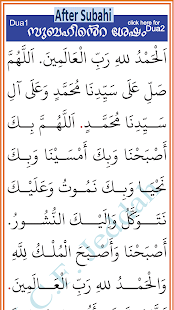 After Subahi
Dua1
click here for
Dua2
സുബഹിൻറ ശേഷം
اَلْحَمْدُ للهِ رَبِّ الْعَالَمِينَ. اَللَّهُمَّ
صَلِّ عَلَى سَيِّدِنَا مُحَمَّدٍ. وَعَلَى آلِ
سَيِّدِنَا مُحَمَّدٍ. اَللَّهُمَّ بِكَ
أَصْبَحْنَا وَبِكَ أَمْسَيْنَا وَبِكَ
نَحْيَا وَبِكَ نَمُوتُ وَعَلَيْكَ
نَتَوَكَّلُ وَإِلَيْكَ النُّشُورُ.
أَصْبَحْنَا وَأَصْبَحَ الْمُلْكُ لِلَّهِ
وَالْحَمْدُ للهِ رَبِّ الْعَالَمِينَ.